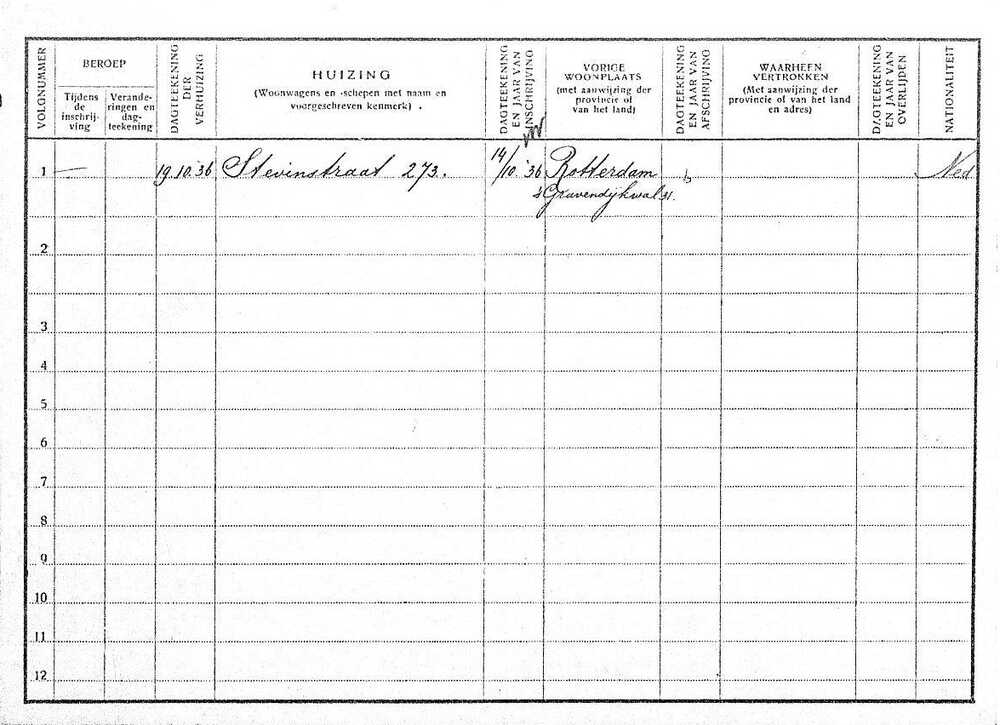 VOLGNUMMER
BEROEP
Tijdens
de
inschrij-
ving
Verande-
ringen en
dag-
teekening
DAGTEEKENING
DER
VERHUIZING
HUIZING
(Woonwagens en -schepen met naam en
voorgeschreven kenmerk) .
DAGTEEKENING
EN JAAR VAN
INSCHRIJVING
VORIGE
WOONPLAATS
(met aanwijzing der
provincie of
van het land)
DAGTEEKENING
EN JAAR VAN
AFSCHRIJVING
WAARHEEN
VERTROKKEN
(Met aanwijzing der
provincie of van het land
en adres)
DAGTEEKENING
EN JAAR VAN
OVERLIJDEN
NATIONALITEIT
1 — 19.10.'36 Stevinstraat 273. 14/10 '36 Rotterdam Ned
's Gravendijkwal 31.
2
3
4
5
6
7
8
9
10
11
12